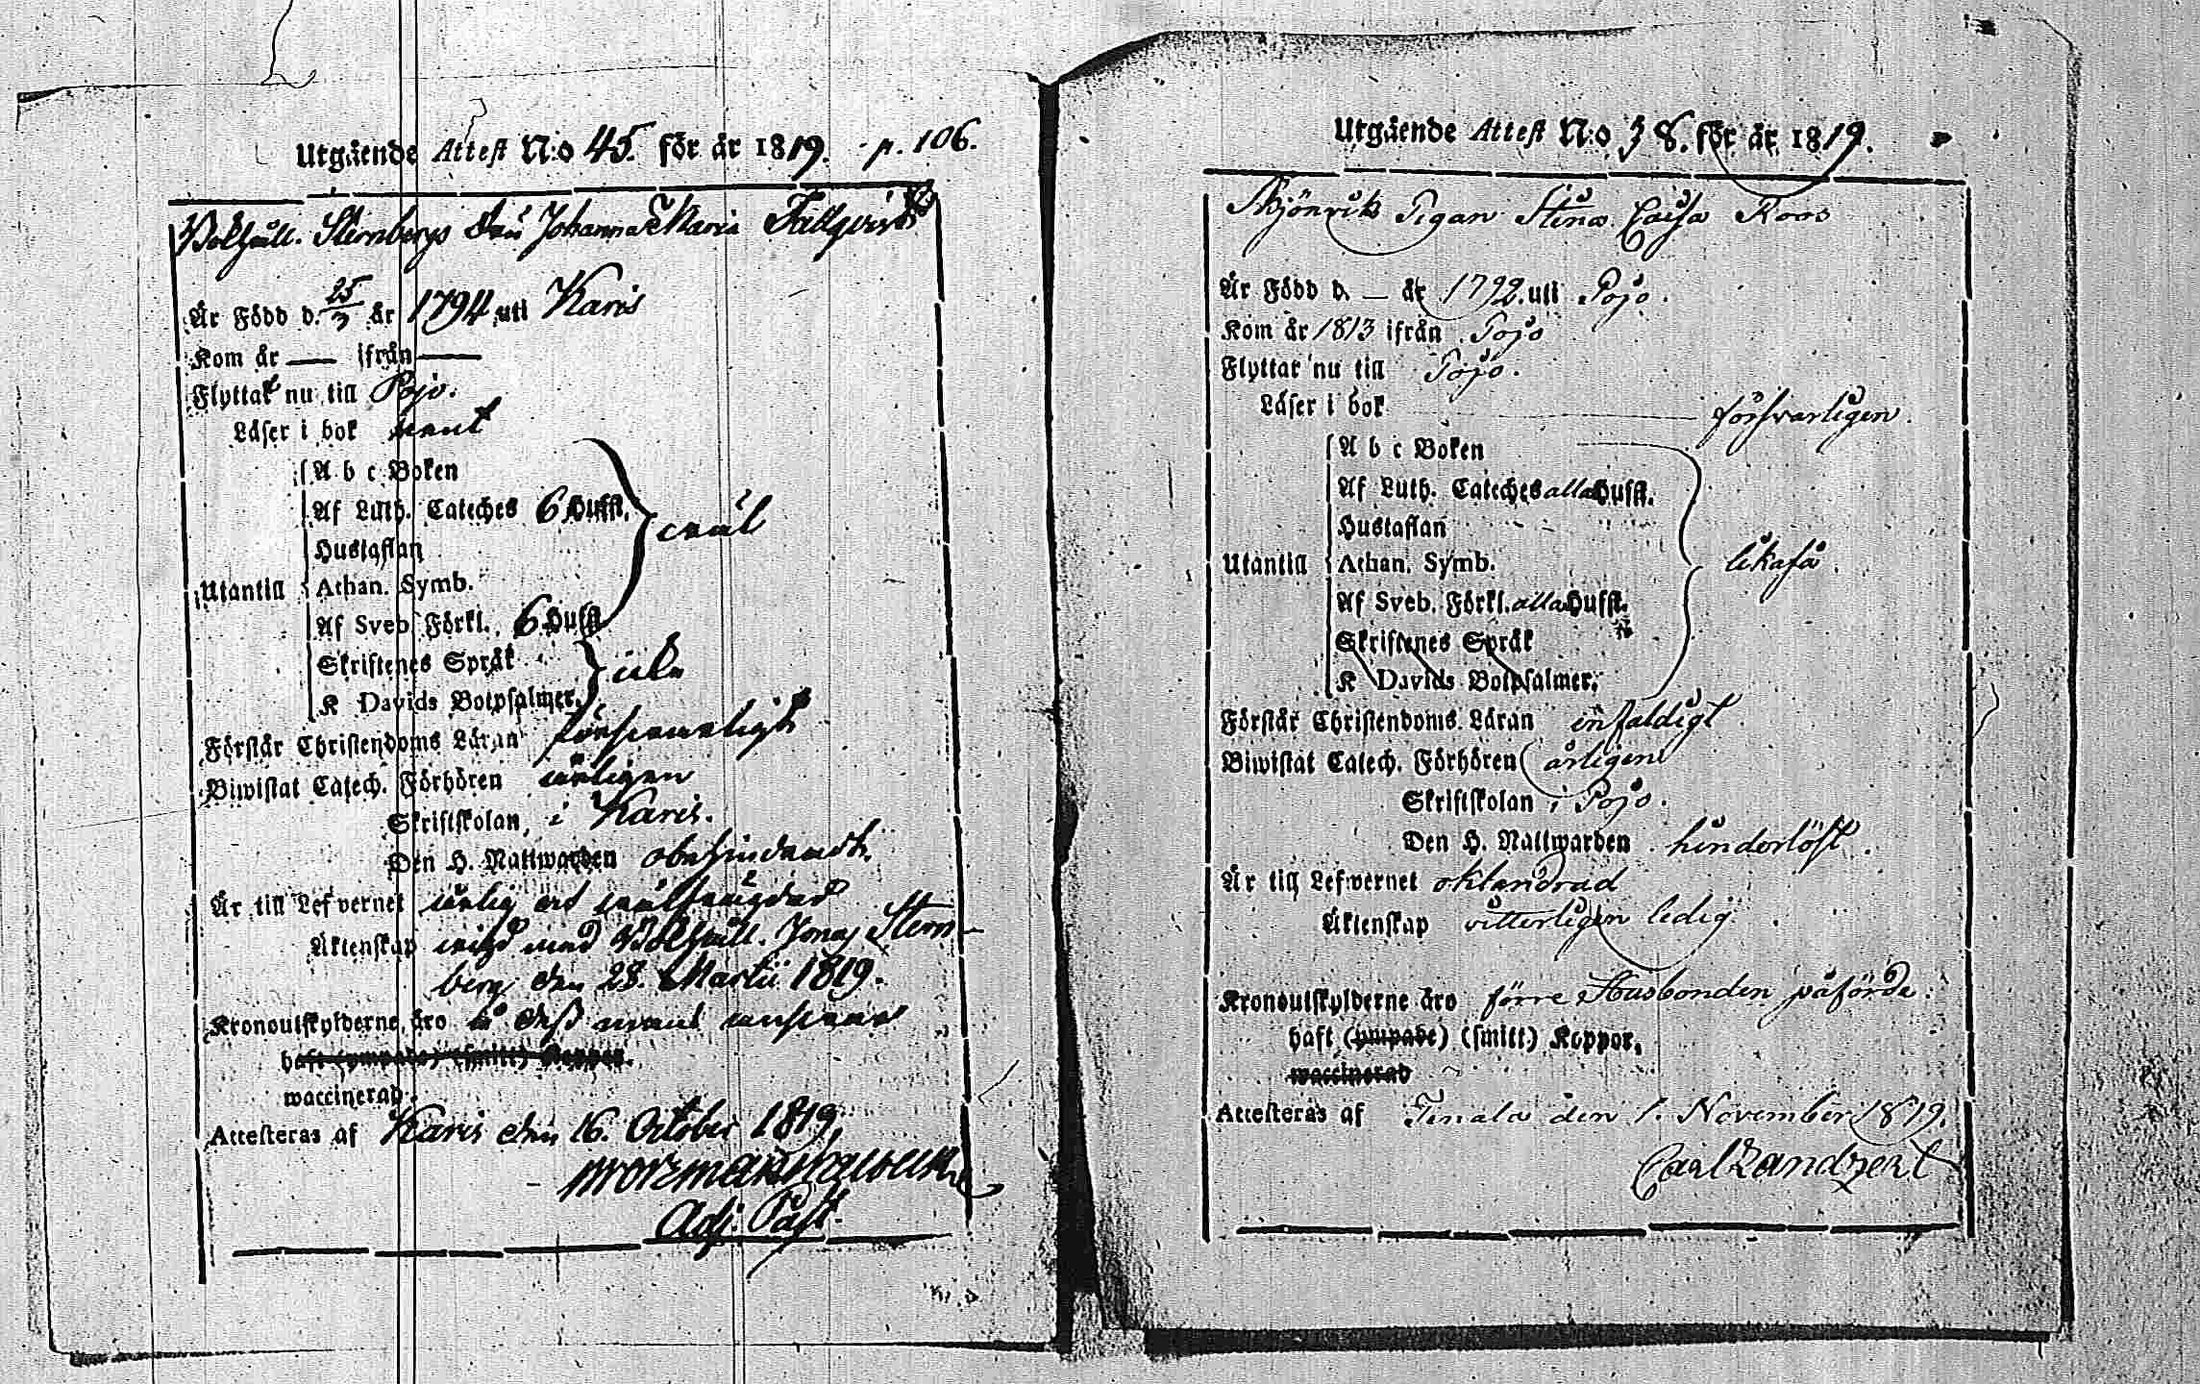 Utgående Attest N:o 45. för år 1819. p. 106.
Bokhåll. Sternbergs Fru Johanna Maria Fallqvist
Är Född d. 25/3 år 1794 uti Karis
Kom år — ifrån —
Flyttat nu till Pojo.
Läser i bok rent
A b c Boken
Af Luth. Cateches 6 Hufst.
Hustaflan
wäl
Utantill Athan. Symb.
Af Sveb. Förkl. 6 Hufst
Skriftenes Språk
K Davids Botpsalmer.
Förstår Christendoms Läran försvarligt
Biwistat Catech. Förhören årligen
Skriftskolan i Karis.
Den H. Nattwarden obehindradt.
Är till Lefvernet ärlig och wälfrägdad
Äktenskap wigd med Bokhåll. Jonas Stern-
berg den 28. Martii 1819.
Kronoutskylderne äro å dess mans
haft (ympade) (smitt) Koppor.
waccinerad.
Attesteras af Karis den 16. October 1819.
Adj. Past.
Utgående Attest N:o 38. för år 1819.
Pigan Stina Caisa Roos
Är Född d. — år 1792. uti Pojo.
Kom år 1813 ifrån Pojo
Flyttar nu till Pojo.
Läser i bok försvarligen.
A b c Boken
Af Luth. Cateches alla Hufst.
Hustaflan
Utantill Athan. Symb. likaså.
Af Sveb. Förkl. alla Hufst.
Skriftenes Språk
K Davids Botpsalmer.
Förstår Christendoms Läran enfaldigt
Biwistat Catech. Förhören årligen
Skriftskolan i Pojo.
Den H. Nattwarden hinderlöst.
Är till Lefvernet oklandrad
Äktenskap vitterligen ledig.
Kronoutskylderne äro förre Husbonden påförde.
haft (ympade) (smitt) Koppor.
waccinerad
Attesteras af Tenala den 1. November 1819.
Carl Landzert